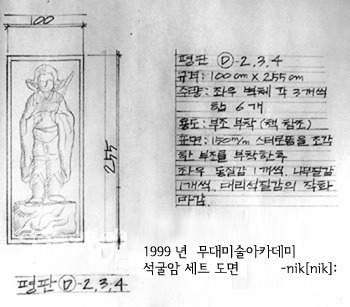 100
255
평판 Ⓓ-2,3,4
평판 Ⓓ-2,3,4
규격: 100cm X 255cm
수량: 좌우 벽체 각 3개씩
합 6개
용도: 부조 부착 (책 참조)
표면: 150m/m 스티로폼을 조각
한 부조를 부착한후
좌우 돌질감 1개씩. 나무질감
1개씩. 대리석질감의 작화
마감.
1999 년 무대미술아카데미
석굴암 세트 도면 -nik[nik]: